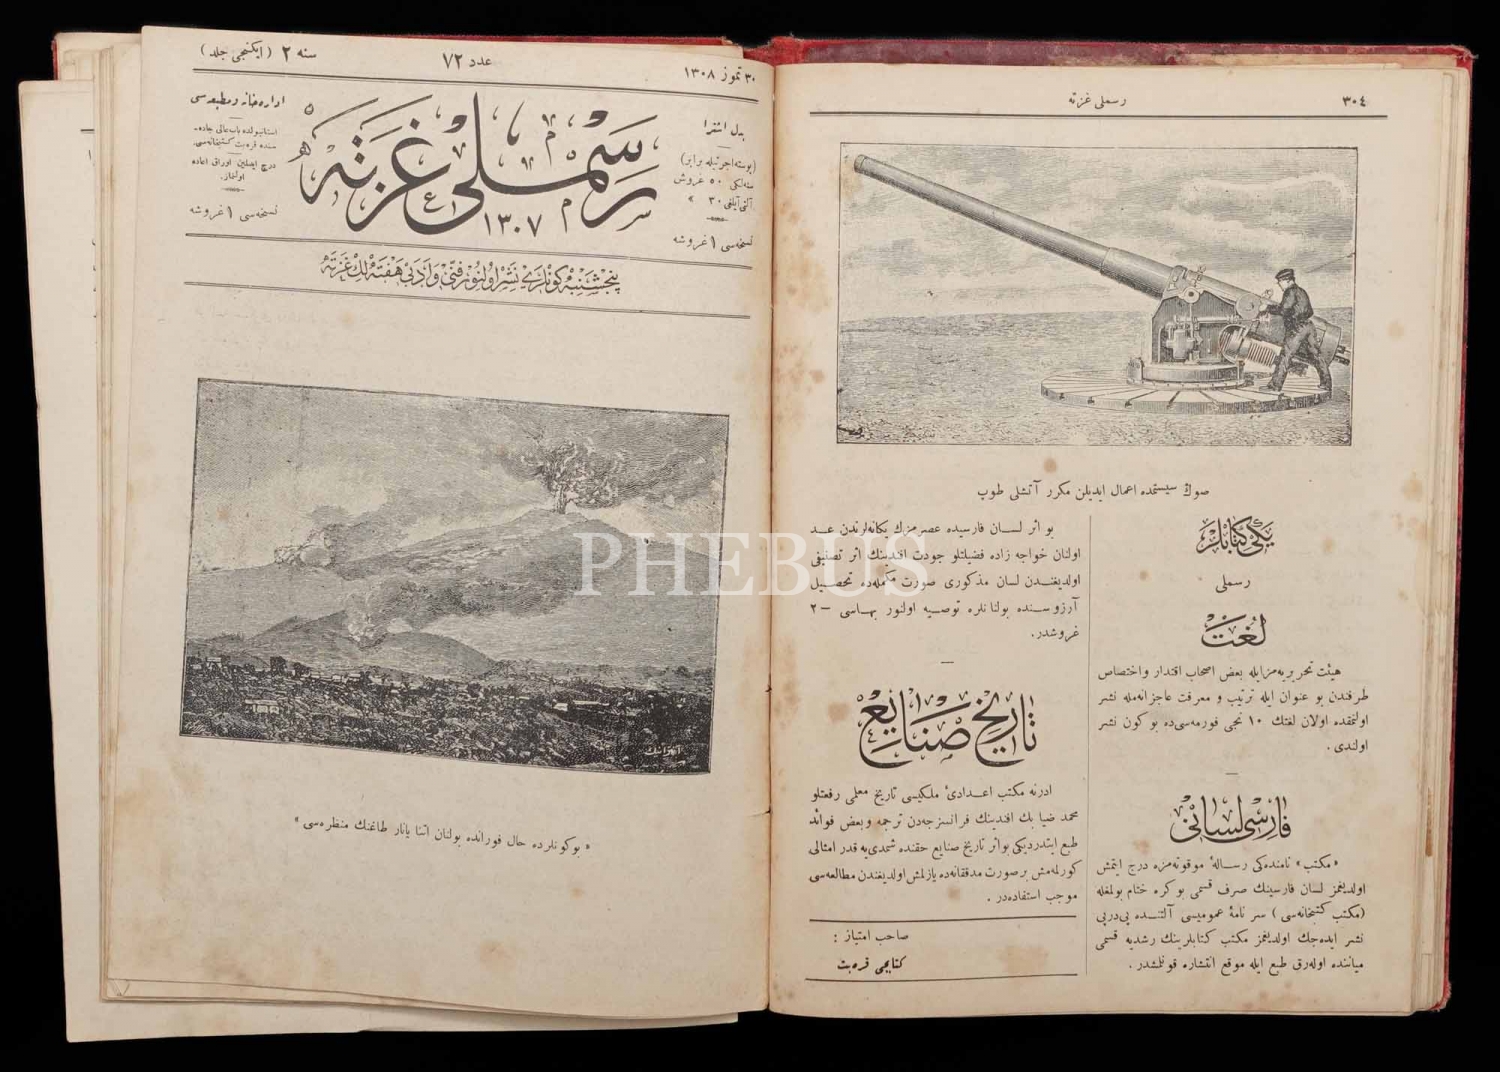 سنه ٢ (ایکنجی جلد)
عدد ٧٢
٣٠ تموز ١٣٠٨
اداره‌خانه و مطبعه‌سی
استانبولده باب عالی جاده‌-
سنده قره‌بت کتبخانه‌سی.
درج ایدلمین اوراق اعاده
اولنماز.
نسخه‌سی ١ غروشه
رسملی غزته
١٣٠٧
بدل اشترا
(پوسته اجرتیله برابر)
سنه‌لکی ٥٠ غروش
آلتی آیلغی ٣٠ »
نسخه‌سی ١ غروشه
پنجشنبه کونلری نشر اولنور فنی و ادبی هفته‌لك غزته
« بو کونلرده حال فورانده بولنان اتنا یانار طاغنك منظره‌سی »
رسملی غزته
٣٠٤
صوك سیستمده اعمال ایدیلن مکرر آتشلی طوپ
یکی کتابلر
رسملی
لغت
هیئت تحریریه‌مز ایله بعض اصحاب اقتدار و اختصاص
طرفندن بو عنوان ایله ترتیب و معرفت عاجزانه‌مله نشر
اولنمقده اولان لغتك ١٠ نجی فورمه‌سی ده بو کون نشر
اولندی .
فارسی لسانی
« مکتب » نامنده‌کی رسالهٔ موقوته‌مزه درج ایتمش
اولدیغمز لسان فارسینك صرف قسمی بو کره ختام بولمغله
(مکتب کتبخانه‌سی) سر نامهٔ عمومیسی آلتنده پی‌درپی
نشر ایده‌جك اولدیغمز مکتب کتابلرینك رشدیه قسمی
میاننده اوله‌رق طبع ایله موقع انتشاره قونلمشدر .
بو اثر لسان فارسیده عصرمزك یکانه‌لرندن عد
اولنان خواجه زاده فضیلتلو جودت افندینك اثر تصنیفی
اولدیغندن لسان مذکوری صورت مکمله‌ده تحصیل
آرزوسنده بولنانلره توصیه اولنور بهاسی – ٢
غروشدر.
تاریخ صنایع
ادرنه مکتب اعدادیٔ ملکیسی تاریخ معلمی رفعتلو
محمد ضیا بك افندینك فرانسزجه‌دن ترجمه و بعض فوائد
طبع ایتدردیکی بو اثر تاریخ صنایع حقنده شمدی‌یه قدر امثالی
کورلمه‌مش بر صورت مدققانه‌ده یازلمش اولدیغندن مطالعه‌سی
موجب استفاده‌در .
صاحب امتیاز :
کتابجی قره‌بت
PHEBUS